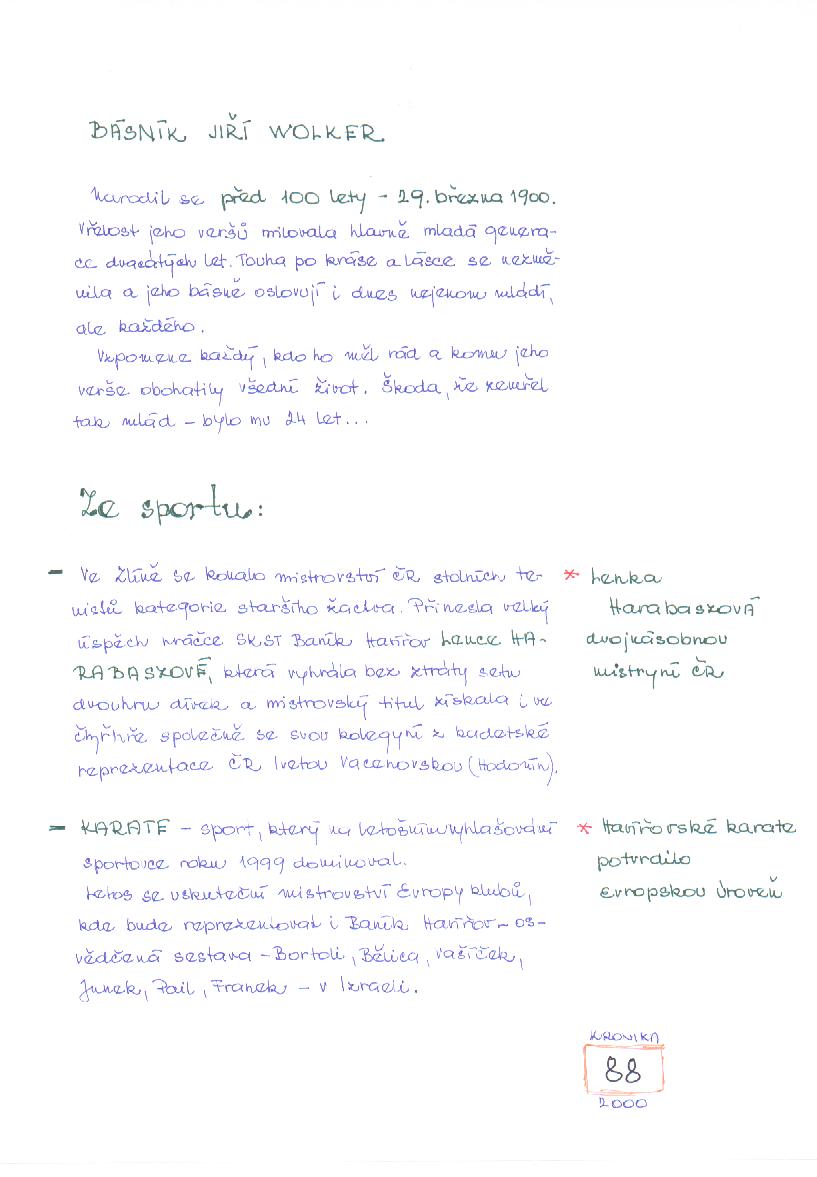 BÁSNÍK JIŘÍ WOLKER
Narodil se před 100 lety - 29. března 1900.
Vřelost jeho veršů milovala hlavně mladá genera-
ce dvacátých let. Touha po kráse a lásce se nezmě-
nila a jeho básně oslovují i dnes nejenom mládí,
ale každého.
Vzpomene každý, kdo ho měl rád a komu jeho
verše obohatily všední život. Škoda, že zemřel
tak mlád - bylo mu 24 let...
Ze sportu:
- Ve Zlíně se konalo mistrovství ČR stolních te-
nistů kategorie staršího žactva. Přinesla velký
úspěch hráčce SKST Baník Havířov Lence HA-
RABASZOVÉ, která vyhrála bez ztráty setu
dvouhru dívek a mistrovský titul získala i ve
čtyřhře společně se svou kolegyní z kadetské
reprezentace ČR Ivetou Vacenovskou (Hodonín).
* Lenka
Harabaszová
dvojnásobnou
mistryní ČR
- KARATE - sport, který na letošním vyhlašování
sportovce roku 1999 dominoval.
Letos se uskuteční mistrovství Evropy klubů,
kde bude reprezentovat i Baník Havířov - os-
vědčená sestava - Bortoli, Bělica, Vašíček,
Junek, Pail, Franek - v Izraeli.
* Havířovské karate
potvrdilo
evropskou úroveň
KRONIKA
88
2000